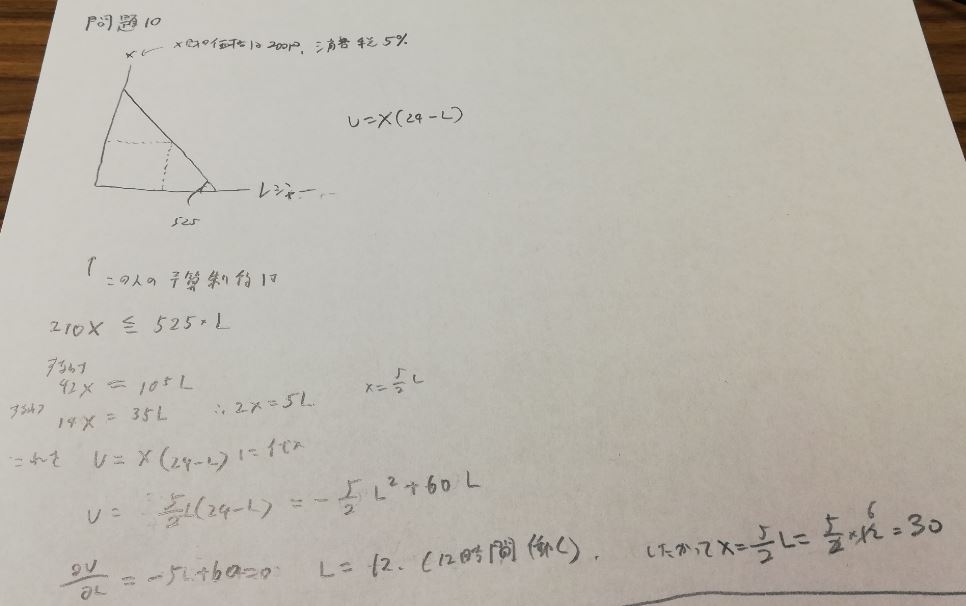 問題10
x ← xの価格は200円, 消費税5%.
U=X(24-L)
レジャー
525
↑ この人の予算制約は
210X ≦ 525・L
すなわち
42X = 105L
すなわち 14X = 35L ∴2X=5L. x=5/2 L
これを U=X(24-L)に代入
U= 5/2 L(24-L) = -5/2 L²+60L
∂U/∂L = -5L+60=0 L=12. (12時間働く). したがってX=5/2 L=5/2×12=30
6